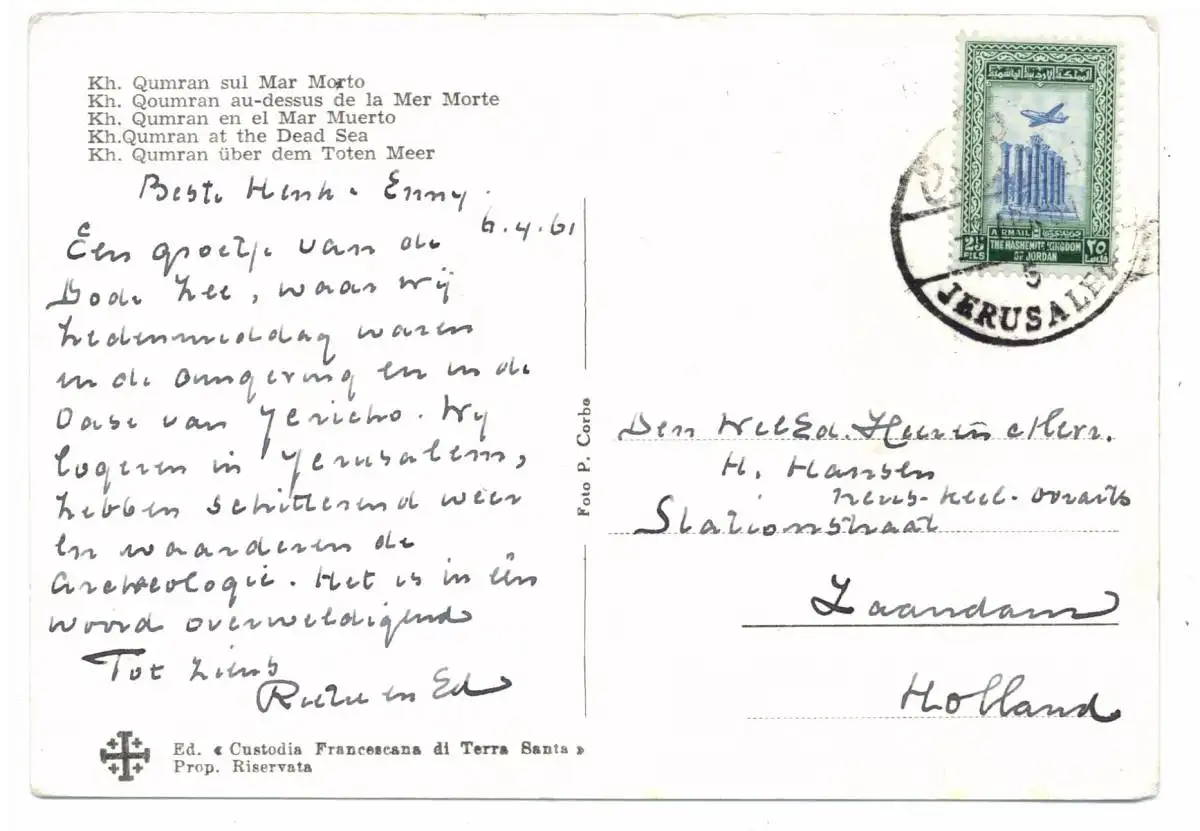 Kh. Qumran sul Mar Morto
Kh. Qoumran au-dessus de la Mer Morte
Kh. Qumran en el Mar Muerto
Kh.Qumran at the Dead Sea
Kh. Qumran über dem Toten Meer
Beste Henk & Enny.
6.4.61
Een groetje van de
Dode Zee, waar wij
hedenmiddag waren
in de omgeving en in de
Oase van Jericho. Wij
logeren in Jerusalem,
hebben schitterend weer
en waarderen de
Archeologie. Het is in één
woord overweldigend
Tot ziens
en Ed
Ed. « Custodia Francescana di Terra Santa »
Prop. Riservata
Foto P. Corbo
المملكة الأردنية الهاشمية
AIRMAIL
25 FILS
THE HASHEMITE KINGDOM
OF JORDAN
٢٥
JERUSALEM
Den WelEd. Heer en Mevr.
H. Hansen
Stationstraat
Zaandam
Holland